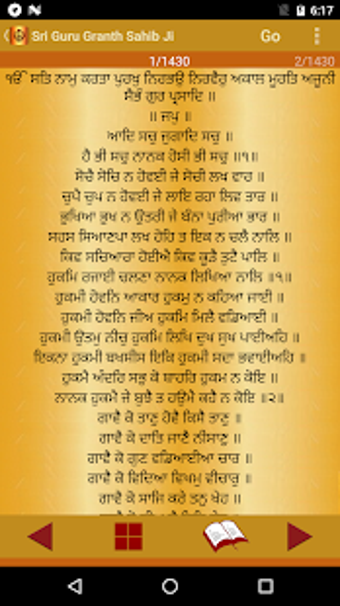 6:17
Sri Guru Granth Sahib Ji
Go
1/1430
2/1430
ੴ ਸਤਿ ਨਾਮੁ ਕਰਤਾ ਪੁਰਖੁ ਨਿਰਭਉ ਨਿਰਵੈਰੁ ਅਕਾਲ ਮੂਰਤਿ ਅਜੂਨੀ
ਸੈਭੰ ਗੁਰ ਪ੍ਰਸਾਦਿ ॥
॥ ਜਪੁ ॥
ਆਦਿ ਸਚੁ ਜੁਗਾਦਿ ਸਚੁ ॥
ਹੈ ਭੀ ਸਚੁ ਨਾਨਕ ਹੋਸੀ ਭੀ ਸਚੁ ॥੧॥
ਸੋਚੈ ਸੋਚਿ ਨ ਹੋਵਈ ਜੇ ਸੋਚੀ ਲਖ ਵਾਰ ॥
ਚੁਪੈ ਚੁਪ ਨ ਹੋਵਈ ਜੇ ਲਾਇ ਰਹਾ ਲਿਵ ਤਾਰ ॥
ਭੁਖਿਆ ਭੁਖ ਨ ਉਤਰੀ ਜੇ ਬੰਨਾ ਪੁਰੀਆ ਭਾਰ ॥
ਸਹਸ ਸਿਆਣਪਾ ਲਖ ਹੋਹਿ ਤ ਇਕ ਨ ਚਲੈ ਨਾਲਿ ॥
ਕਿਵ ਸਚਿਆਰਾ ਹੋਈਐ ਕਿਵ ਕੂੜੈ ਤੁਟੈ ਪਾਲਿ ॥
ਹੁਕਮਿ ਰਜਾਈ ਚਲਣਾ ਨਾਨਕ ਲਿਖਿਆ ਨਾਲਿ ॥੧॥
ਹੁਕਮੀ ਹੋਵਨਿ ਆਕਾਰ ਹੁਕਮੁ ਨ ਕਹਿਆ ਜਾਈ ॥
ਹੁਕਮੀ ਹੋਵਨਿ ਜੀਅ ਹੁਕਮਿ ਮਿਲੈ ਵਡਿਆਈ ॥
ਹੁਕਮੀ ਉਤਮੁ ਨੀਚੁ ਹੁਕਮਿ ਲਿਖਿ ਦੁਖ ਸੁਖ ਪਾਈਅਹਿ ॥
ਇਕਨਾ ਹੁਕਮੀ ਬਖਸੀਸ ਇਕਿ ਹੁਕਮੀ ਸਦਾ ਭਵਾਈਅਹਿ ॥
ਹੁਕਮੈ ਅੰਦਰਿ ਸਭੁ ਕੋ ਬਾਹਰਿ ਹੁਕਮ ਨ ਕੋਇ ॥
ਨਾਨਕ ਹੁਕਮੈ ਜੇ ਬੁਝੈ ਤ ਹਉਮੈ ਕਹੈ ਨ ਕੋਇ ॥੨॥
ਗਾਵੈ ਕੋ ਤਾਣੁ ਹੋਵੈ ਕਿਸੈ ਤਾਣੁ ॥
ਗਾਵੈ ਕੋ ਦਾਤਿ ਜਾਣੈ ਨੀਸਾਣੁ ॥
ਗਾਵੈ ਕੋ ਗੁਣ ਵਡਿਆਈਆ ਚਾਰ ॥
ਗਾਵੈ ਕੋ ਵਿਦਿਆ ਵਿਖਮੁ ਵੀਚਾਰੁ ॥
ਗਾਵੈ ਕੋ ਸਾਜਿ ਕਰੇ ਤਨੁ ਖੇਹ ॥